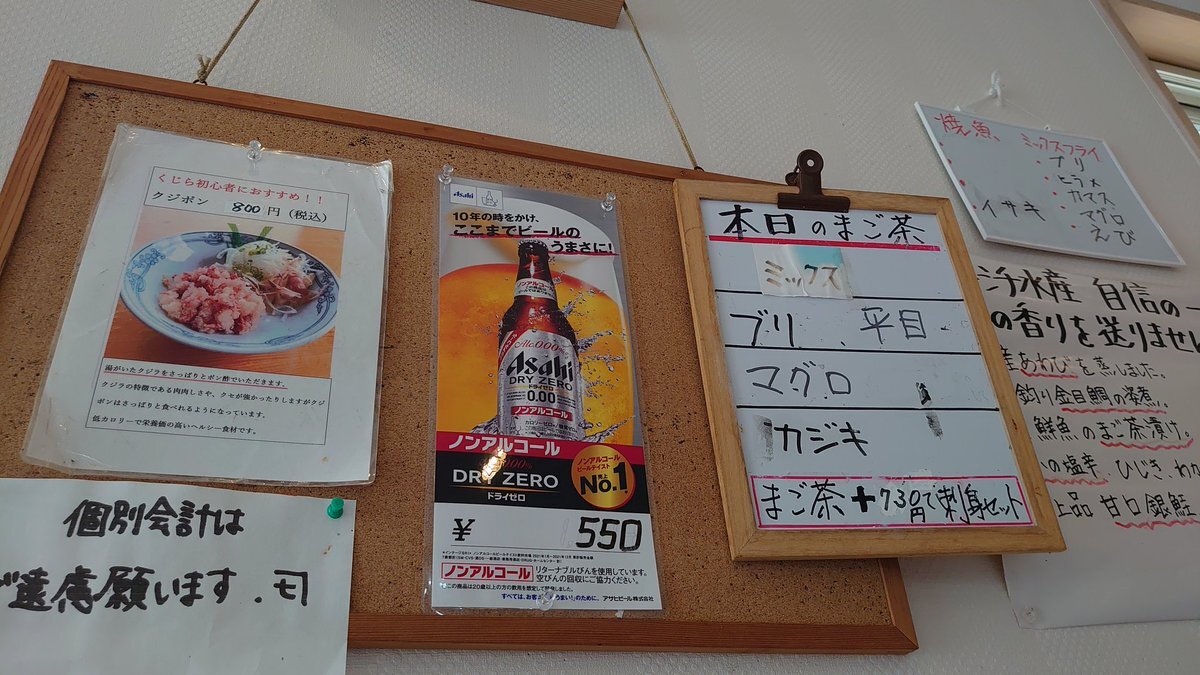 くじら初心者におすすめ！！
クジポン 800円（税込）
湯がいたクジラをさっぱりとポン酢でいただきます。
クジラの特徴である肉肉しさや、クセが強かったりしますがクジ
ポンはさっぱりと食べれるようになっています。
低カロリーで栄養価の高いヘルシー食材です。
個別会計は
ご遠慮願います.
Asahi
10年の時をかけ、
ここまでビールの
うまさに!
ノンアルコール
Alc.0.00%
Asahi
DRY ZERO
ドライゼロ
0.00
ノンアルコール
ノンアルコール
0.00%
DRY ZERO
ドライゼロ
ノンアルコール
ビールテイスト
売上
No.1
¥ 550
ノンアルコール
リターナブルびんを使用しています。
空びんの回収にご協力ください。
すべては、お客さまの「うまい!」のために。 アサヒビール株式会社
本日のまご茶
ミックス
ブリ 平目
マグロ
カジキ
まご茶+730円で刺身セット
焼魚
・イサキ
ミックスフライ
・ブリ
・ヒラメ
・カマス
・マグロ
・えび
水産 自信の
の香りを送りません
産あわびを蒸しました。
釣り金目鯛の姿煮。
鮮魚のまご茶漬け。
の塩辛。ひじき.わ
上品 甘口銀鮭